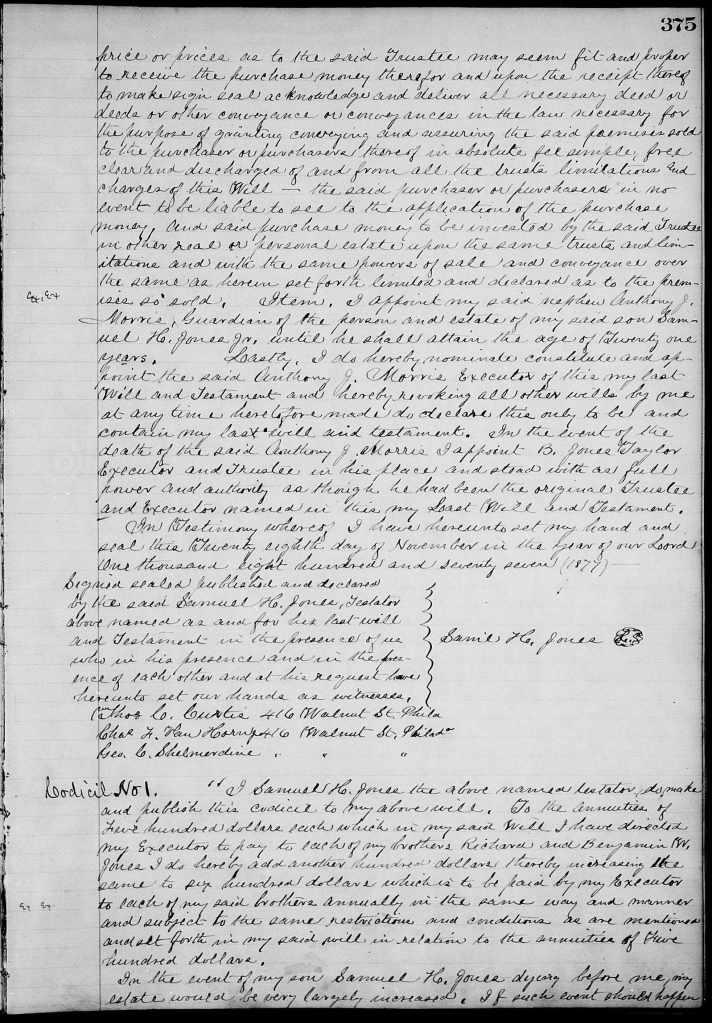 375
price or prices as to the said Trustee may seem fit and proper
to receive the purchase money therefor and upon the receipt thereof
to make sign seal acknowledge and deliver all necessary deed or
deeds or other conveyance or conveyances in the law necessary for
the purpose of granting conveying and assuring the said premises sold
to the purchaser or purchasers thereof in absolute fee simple, free
clear and discharged of and from all the trusts limitations and
charges of this Will — the said purchaser or purchasers in no
event to be liable to see to the application of the purchase
money, And said purchase money to be invested by the said Trustee
in other real or personal estate upon the same trusts and lim-
itations and with the same powers of sale and conveyance over
the same as herein set forth limited and declared as to the prem-
ises so sold. Item. I appoint my said nephew Anthony J.
Morris, Guardian of the person and estate of my said son Sam-
uel H. Jones Jr. until he shall attain the age of Twenty one
years. Lastly. I do hereby nominate constitute and ap-
point the said Anthony J. Morris Executor of this my last
Will and Testament and hereby revoking all other wills by me
at any time heretofore made do declare this only to be and
contain my last will and testament. In the event of the
death of the said Anthony J. Morris I appoint B. Jones Taylor
Executor and Trustee in his place and stead with as full
power and authority as though he had been the original Trustee
and Executor named in this my Last Will and Testament.
In Testimony whereof I have hereunto set my hand and
seal this Twenty eighth day of November in the year of our Lord
One thousand eight hundred and seventy seven (1877) —
Signed sealed published and declared
by the said Samuel H. Jones, Testator
above named as and for his last will
and Testament in the presence of us
who in his presence and in the pres-
ence of each other and at his request have
hereunto set our hands as witnesses.
Saml H. Jones LS
Thos C. Curtis 416 Walnut St. Phila
Chas F. Van Horn 416 Walnut St. Philada
Geo. C. Shelmerdine " " "
Codicil No 1. "I Samuel H. Jones the above named testator, do make
and publish this codicil to my above will. To the annuities of
Five hundred dollars each which in my said Will I have directed
my Executor to pay to each of my brothers Richard and Benjamin W.
Jones I do hereby add another hundred dollars thereby increasing the
same to six hundred dollars which is to be paid by my Executor
to each of my said brothers annually in the same way and manner
and subject to the same restrictions and conditions as are mentioned
and set forth in my said will in relation to the annuities of Five
hundred dollars.
In the event of my son Samuel H. Jones dying before me, my
estate would be very largely increased. If such event should happen